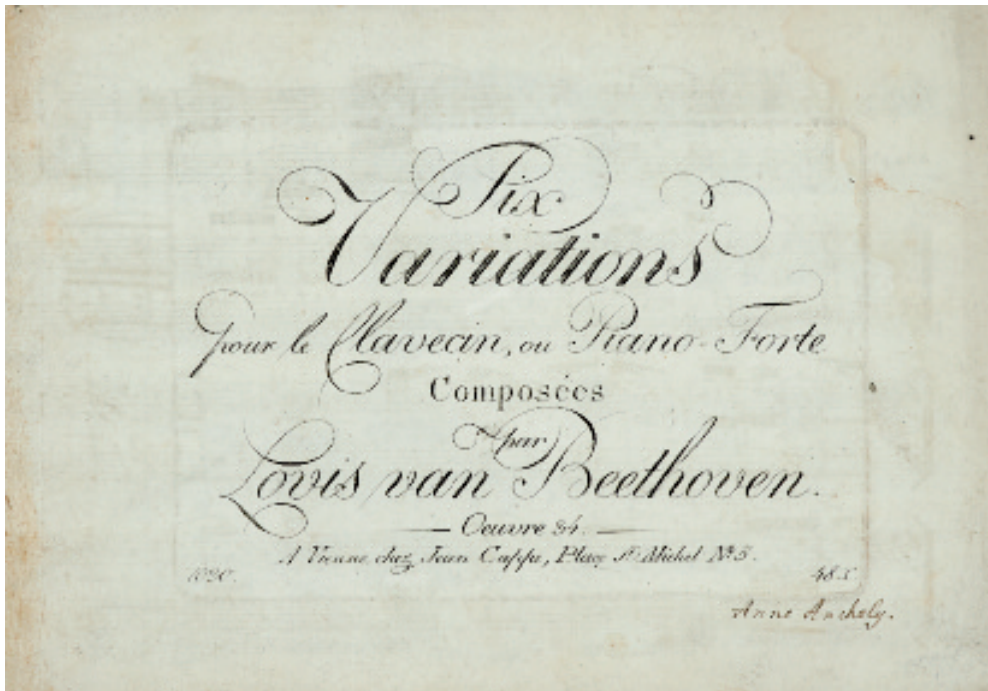 Six
Variations
pour le Clavecin, ou Piano-Forte
Composées
par
Lovis van Beethoven.
Oeuvre 34.
A Vienne chez Jean Cappi, Place St. Michel No. 5.
1020. 48 x
Anne